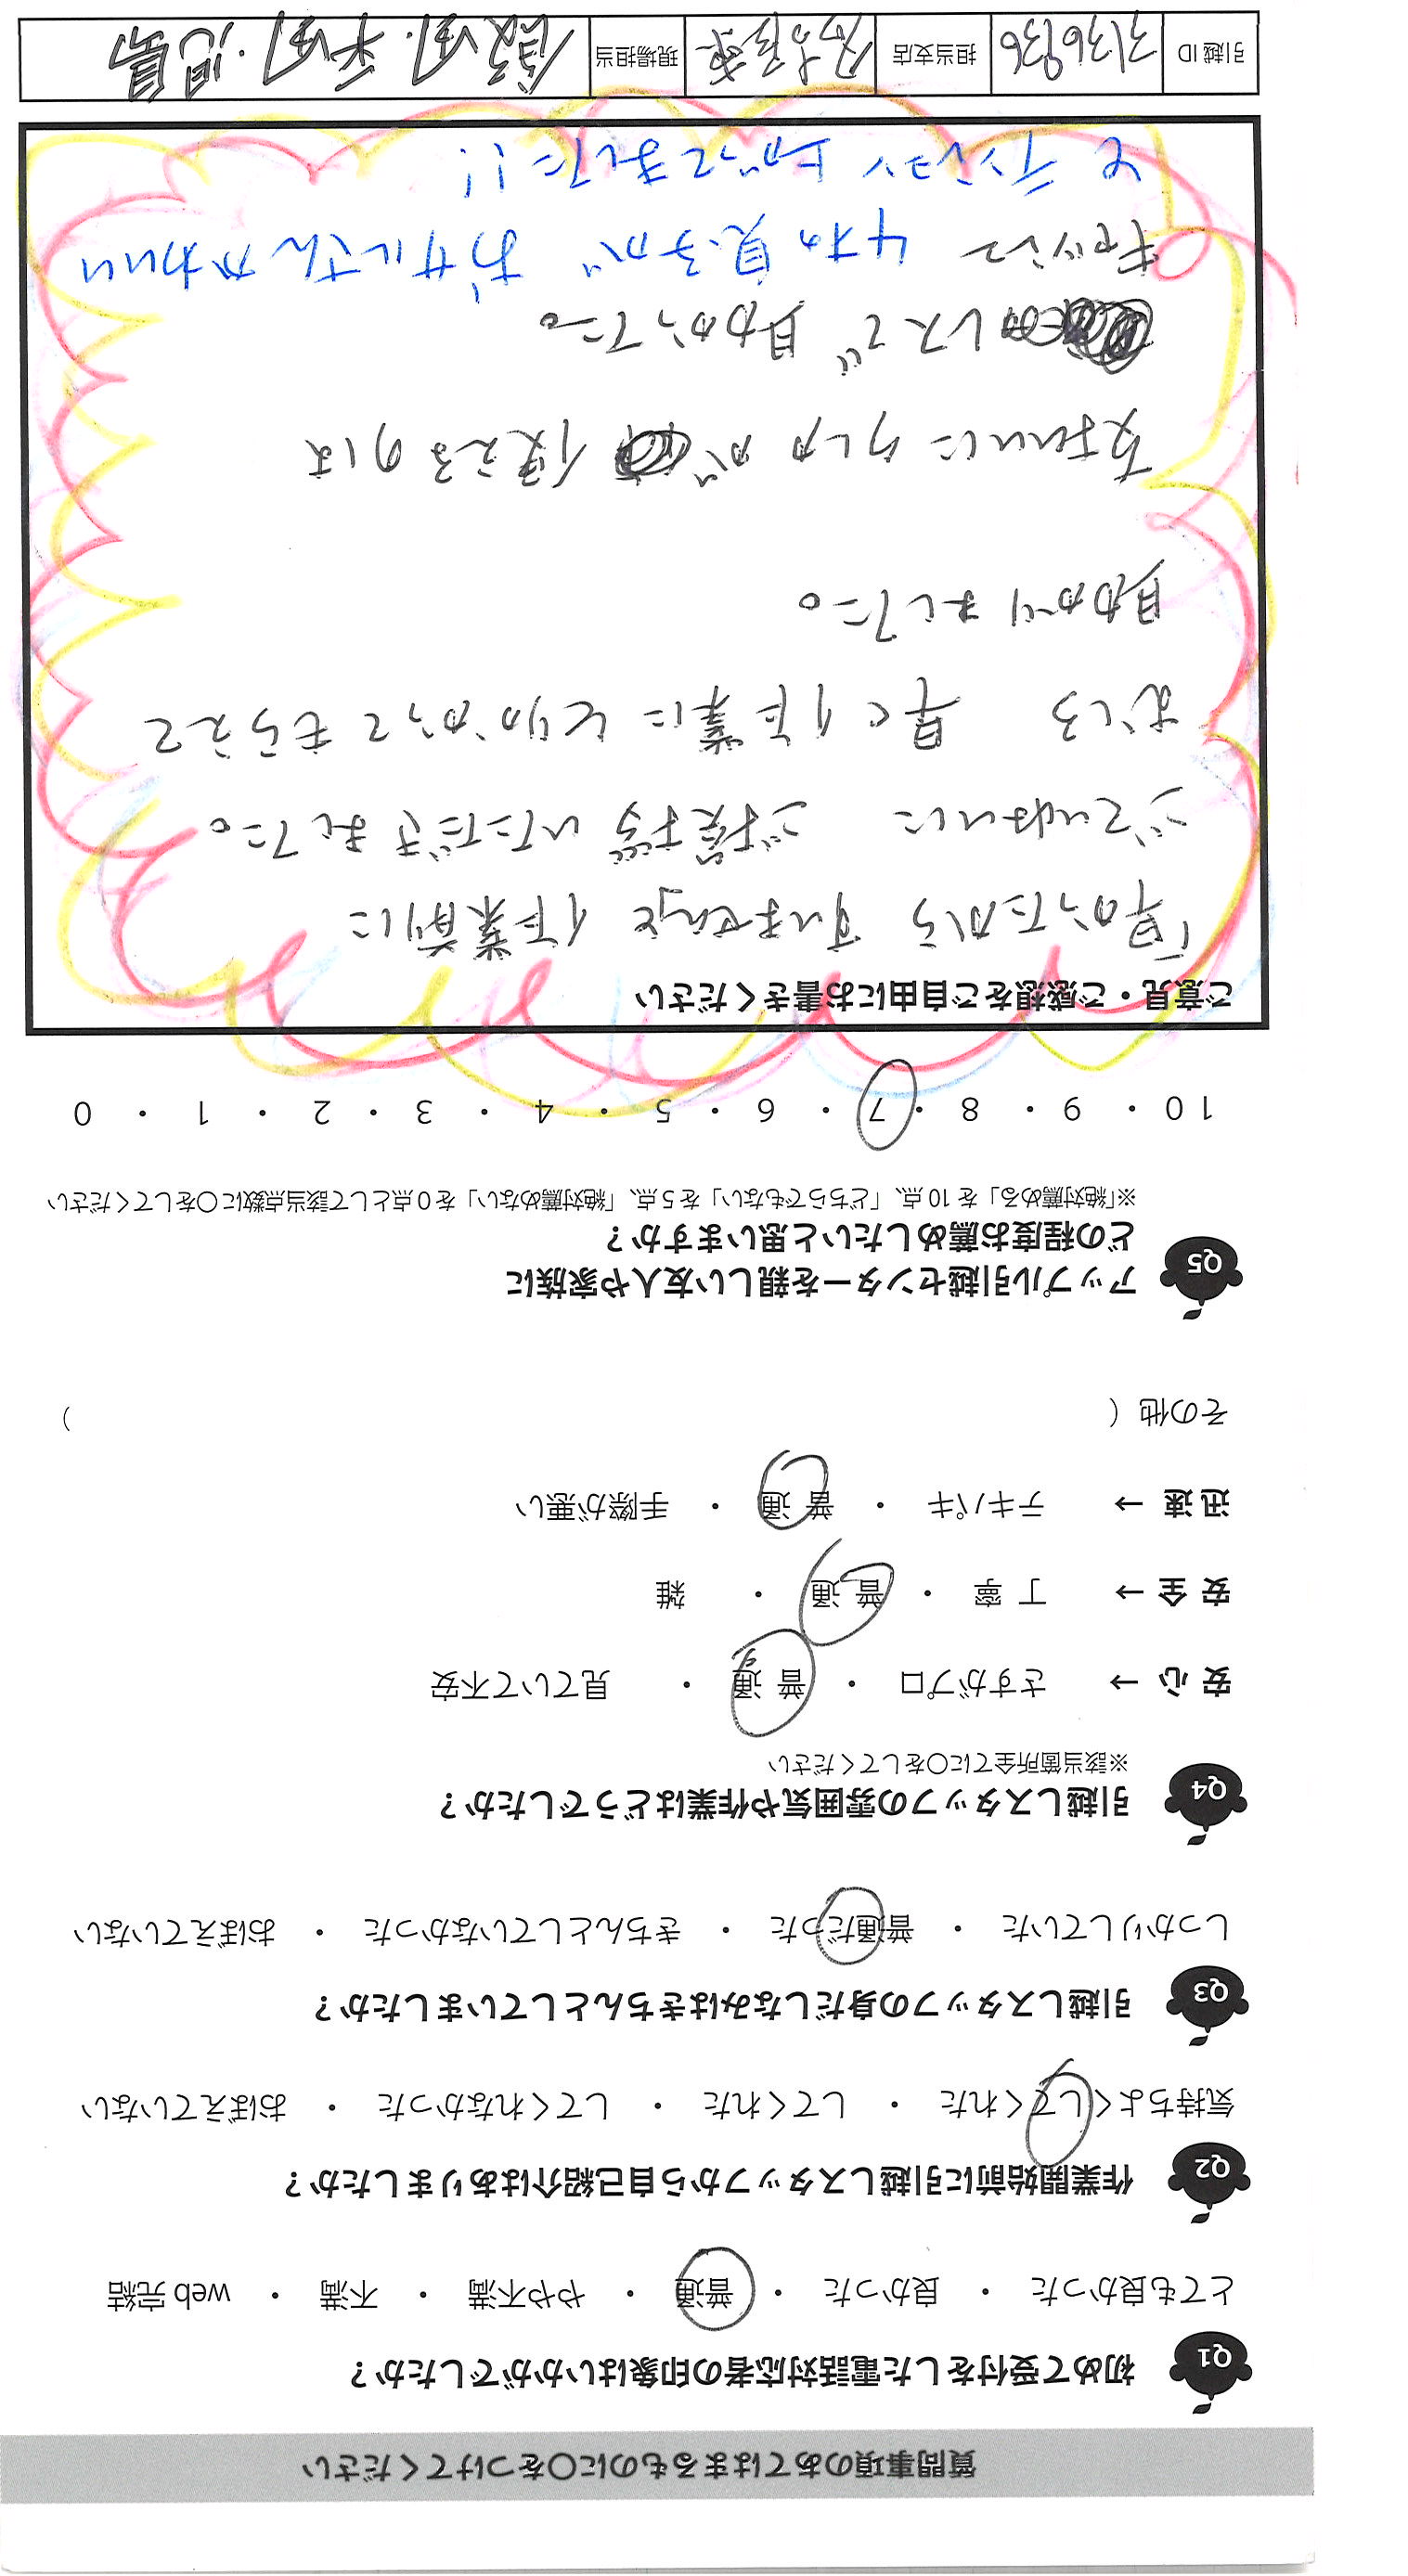 質問事項のあてはまるものに○をつけてください
Q1 初めて受付をした電話対応者の印象はいかがでしたか？
とても良かった ・ 良かった ・ 普通 ・ やや不満 ・ 不満 ・ web 完結
Q2 作業開始前に引越しスタッフから自己紹介はありましたか？
気持ちよくしてくれた ・ してくれた ・ してくれなかった ・ おぼえていない
Q3 引越しスタッフの身だしなみはきちんとしていましたか？
しっかりしていた ・ 普通だった ・ きちんとしていなかった ・ おぼえていない
Q4 引越しスタッフの雰囲気や作業はどうでしたか？
※該当箇所全てに○をしてください
安 心 → さすがプロ ・ 普 通 ・ 見ていて不安
安 全 → 丁 寧 ・ 普 通 ・ 雑
迅 速 → テキパキ ・ 普 通 ・ 手際が悪い
その他（ ）
Q5 アップル引越センターを親しい友人や家族に
どの程度お薦めしたいと思いますか？
※「絶対薦める」を 10 点、「どちらでもない」を 5 点、「絶対薦めない」を 0 点として該当点数に○をしてください
10 ・ 9 ・ 8 ・ 7 ・ 6 ・ 5 ・ 4 ・ 3 ・ 2 ・ 1 ・ 0
ご意見・ご感想をご自由にお書きください
「早かったから すいません」と 作業前に
ごていねいに ご挨拶 いただきました。
むしろ 早く作業に とりかかって もらえて
助かりました。
支払いに クレカが 使えるのは
レスで 助かった。
キャッシュ 4才の息子が おサルさん かわいい
と テンション 上がってました!!
引越 ID 3136936 担当支店 名古屋東 現場担当